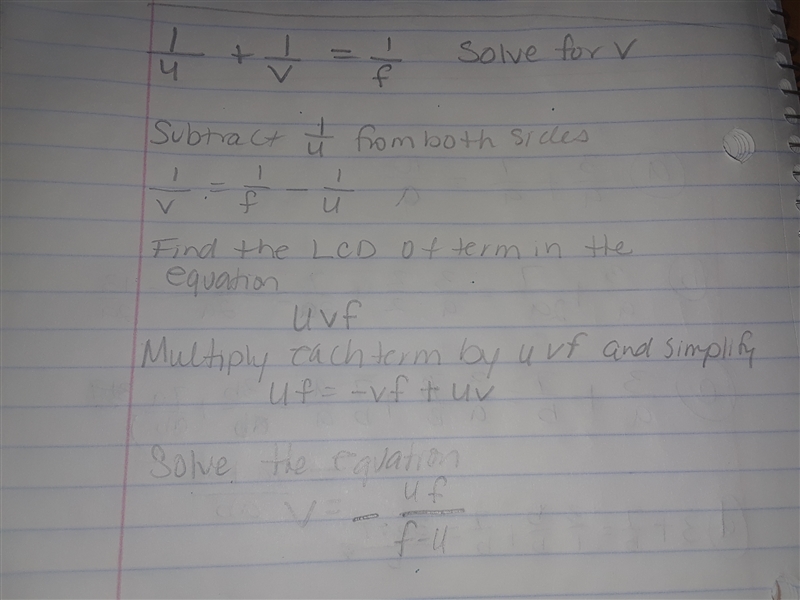 1/u + 1/v = 1/f Solve for v
Subtract 1/u from both sides
1/v = 1/f - 1/u
Find the LCD of term in the
equation
uvf
Multiply each term by uvf and simplify
uf = -vf + uv
Solve the equation
v = - uf/f-u